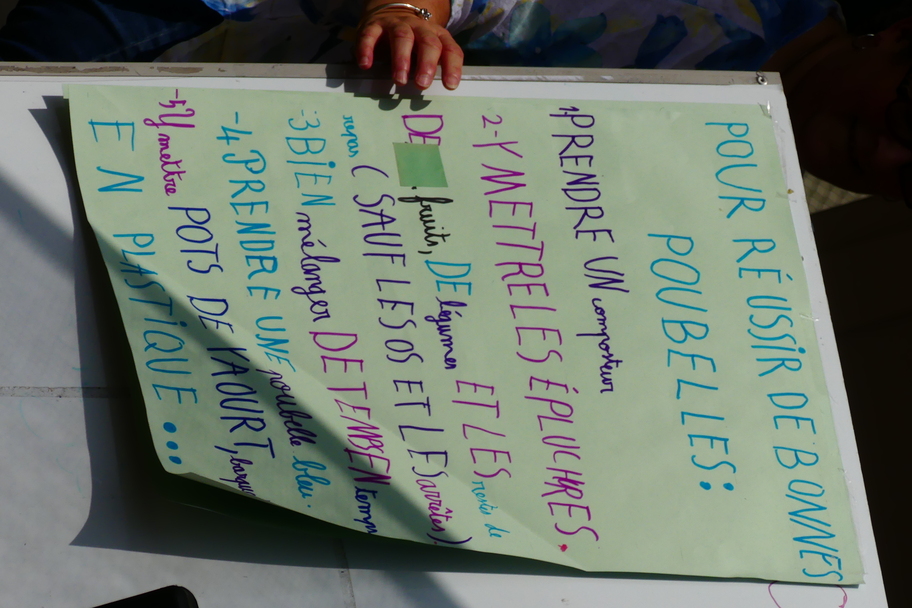 POUR RÉUSSIR DE BONNES
POUBELLES:
1-PRENDRE UN composteur
2-Y METTRE LES ÉPLUCHRES.
DE fruits, DE légumes ET LES restes de
repas (SAUF LES OS ET LES arrêtes).
-3 BIEN mélanger DE TEMSEN temps
-4 PRENDRE UNE poubelle bleu.
-5 Y mettre POTS DE YAOURT,
EN PLASTIQUE...